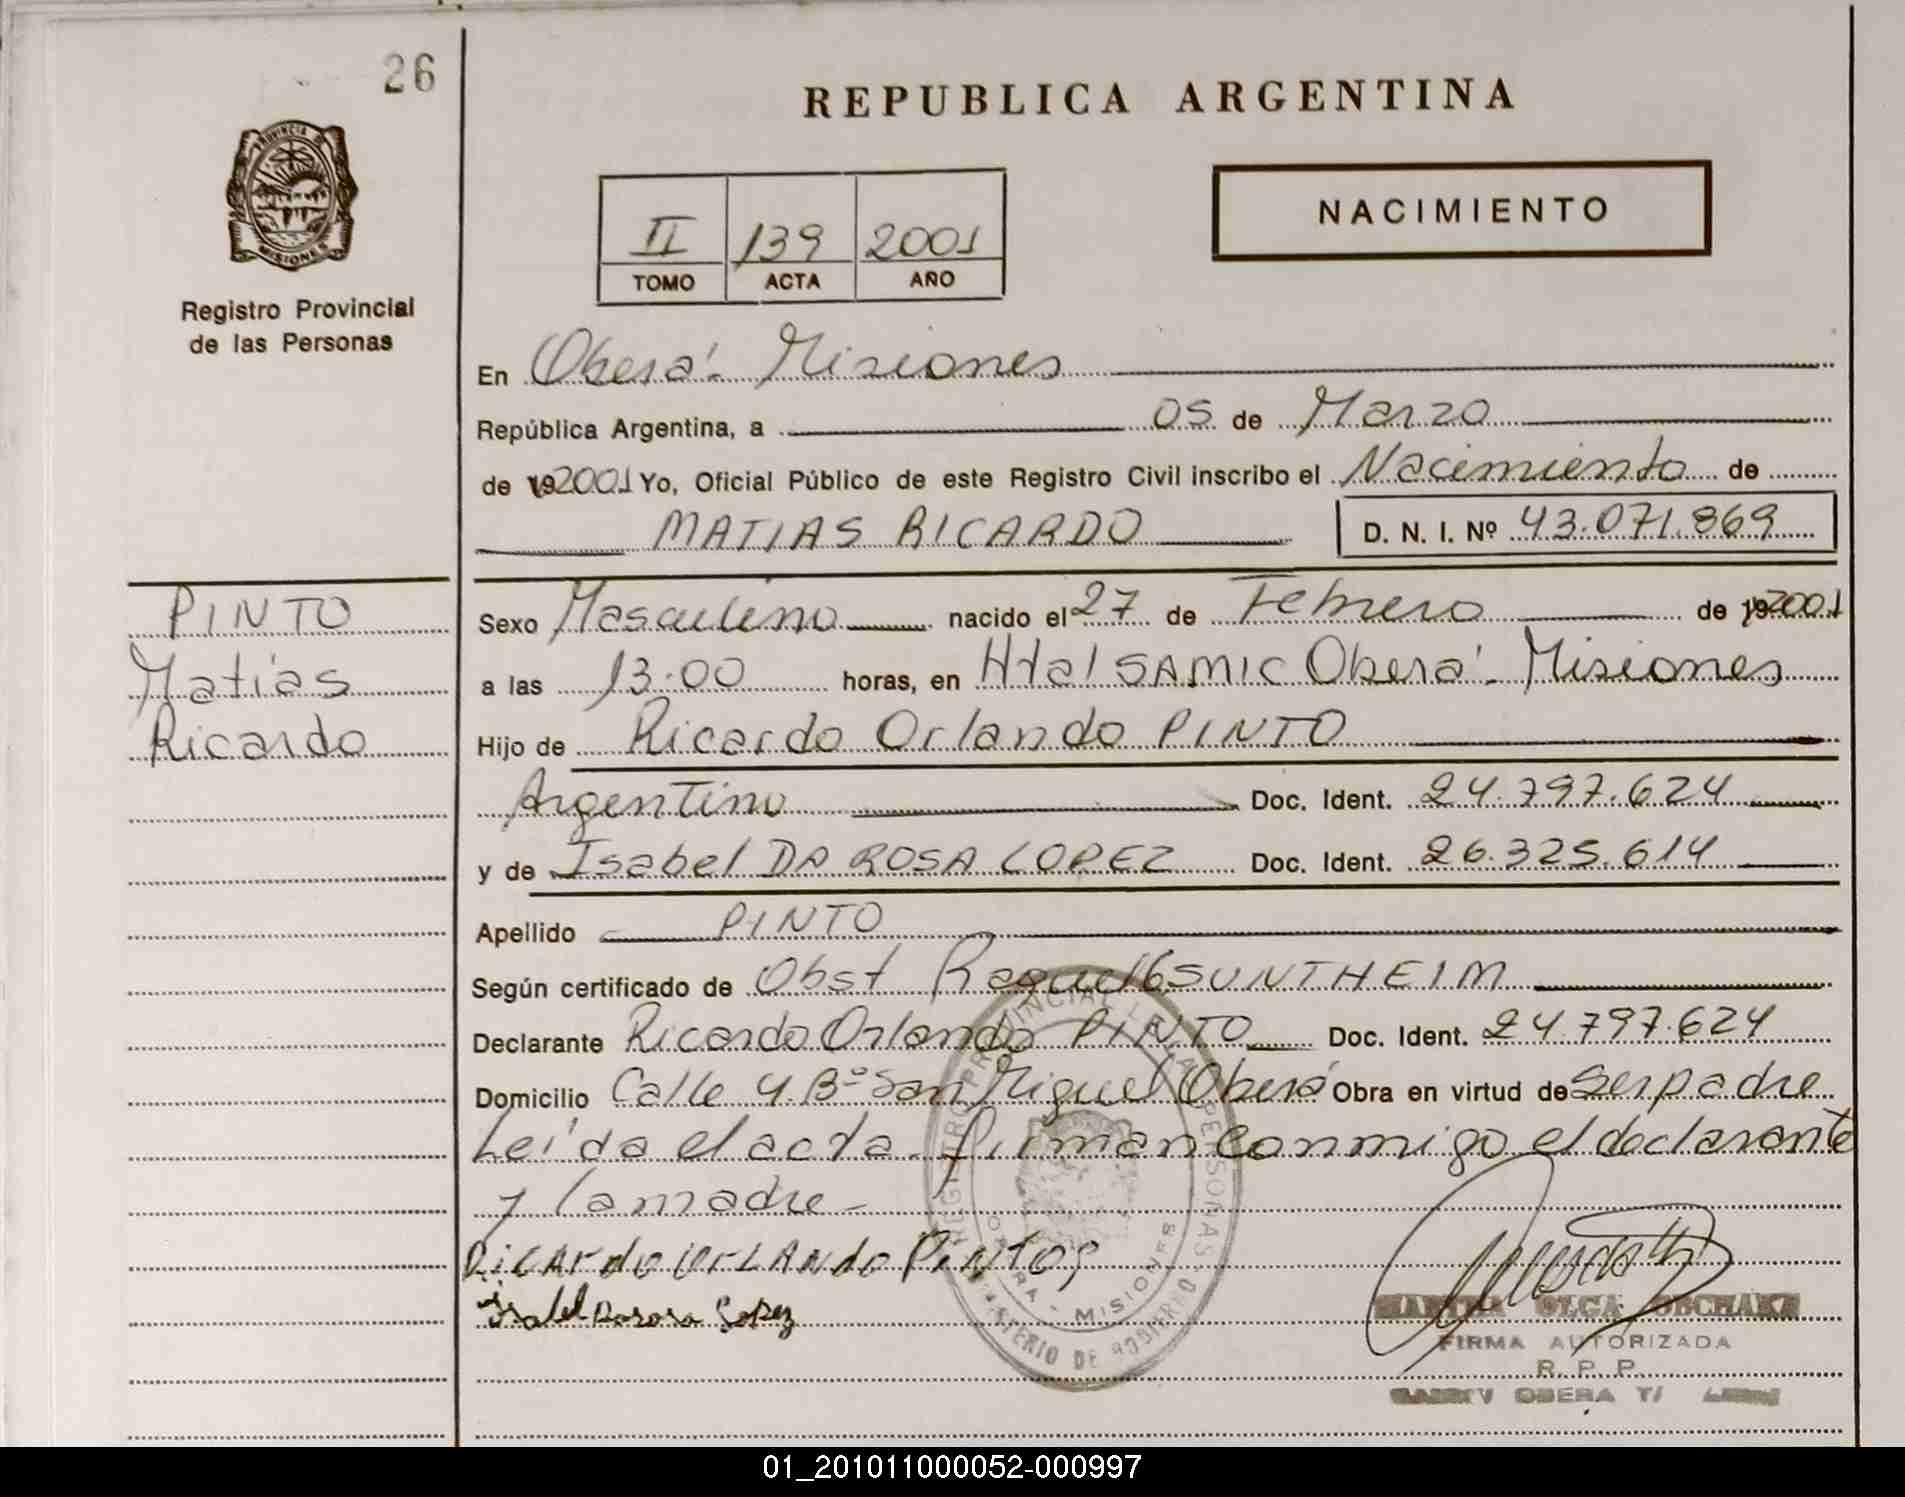 26
REPUBLICA ARGENTINA
PROVINCIA D
MISIONES
Registro Provincial
de las Personas
II 139 2001
TOMO ACTA AÑO
NACIMIENTO
En Oberá - Misiones
República Argentina, a 05 de Marzo
de 192001 Yo, Oficial Público de este Registro Civil inscribo el Nacimiento de
MATIAS RICARDO D. N. I. Nº 43.071.869
PINTO
Matías
Ricardo
Sexo Masculino nacido el 27 de Febrero de 192001
a las 13.00 horas, en Htal SAMIC Oberá - Misiones
Hijo de Ricardo Orlando PINTO
Argentino Doc. Ident. 24.797.624
y de Isabel DA ROSA LOPEZ Doc. Ident. 26.325.614
Apellido PINTO
Según certificado de Obst Raquel GSUNTHEIM
Declarante Ricardo Orlando PINTO Doc. Ident. 24.797.624
Domicilio Calle 4. Bº San Miguel Oberá Obra en virtud de Ser padre
Leída el acta firman conmigo el declarante
y la madre -
Ricardo Orlando Pinto
Isabel Darosa Lopez
REGISTRO PROVINCIAL DE LAS PERSONAS
MINISTERIO DE GOBIERNO
OBERA - MISIONES
OLGA
FIRMA AUTORIZADA
R. P. P.
OBERA
01_201011000052-000997